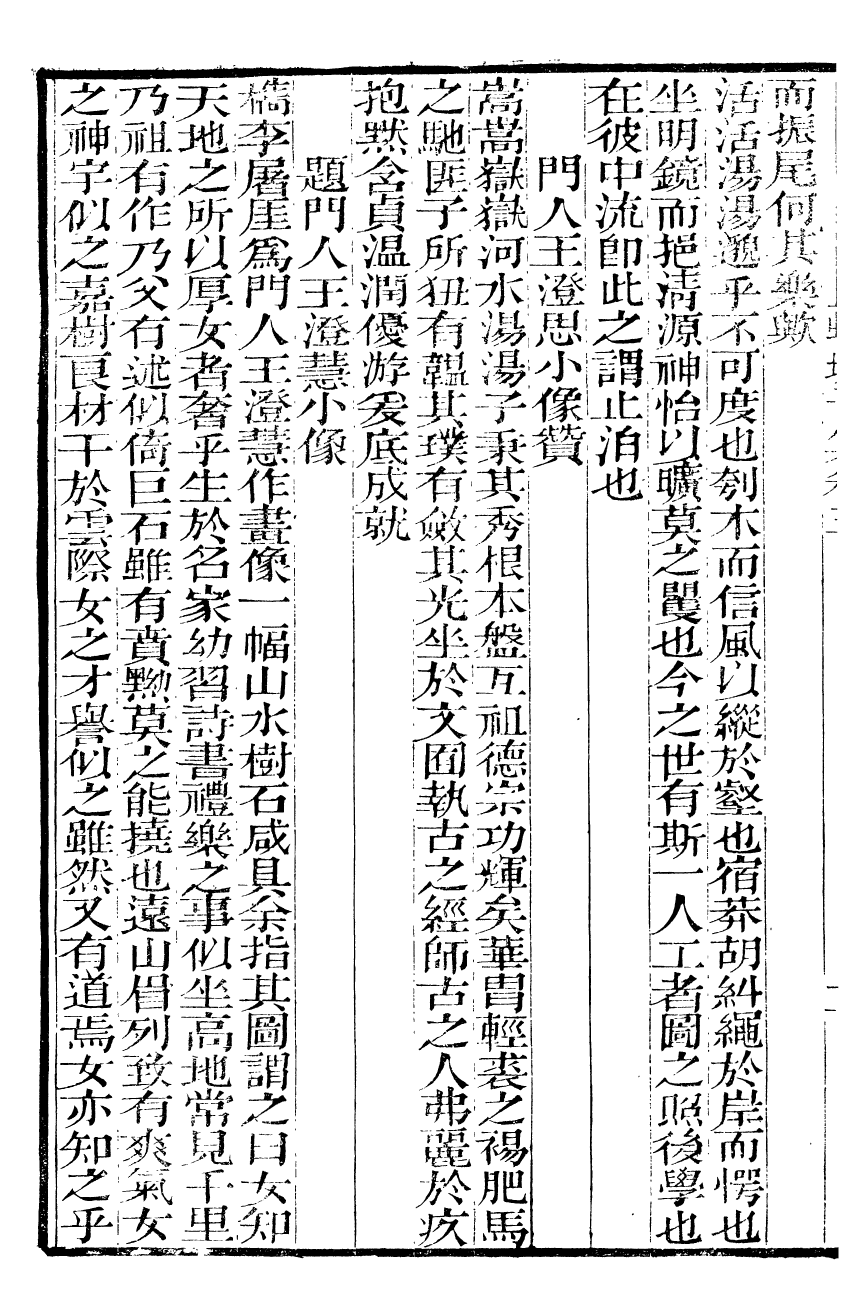 而振尾何其樂歟
活活湯湯邈乎不可度也刳木而信風以縱於壑也宿莽胡糾繩於岸而愕也
坐明鏡而挹清源神怡以曠莫之矍也今之世有斯一人工者圖之照後學也
在彼中流卽此之謂止泊也
門人王澄思小像贊
嵩嵩嶽嶽河水湯湯子秉其秀根本盤互祖德宗功輝矣華冑輕裘之裼肥馬
之馳匪子所狃有韞其璞有斂其光坐於文囿執古之經師古之人弗麗於疚
抱黙含貞温潤優游爰底成就
題門人王澄慧小像
檇李屠厓爲門人王澄慧作畫像一幅山水樹石咸具余指其圖謂之曰女知
天地之所以厚女者奢乎生於名家幼習詩書禮樂之事似坐高地常見千里
乃祖有作乃父有述似倚巨石雖有賁黝莫之能撓也遠山眉列致有爽氣女
之神宇似之嘉樹良材干於雲際女之才譽似之雖然又有道焉女亦知之乎